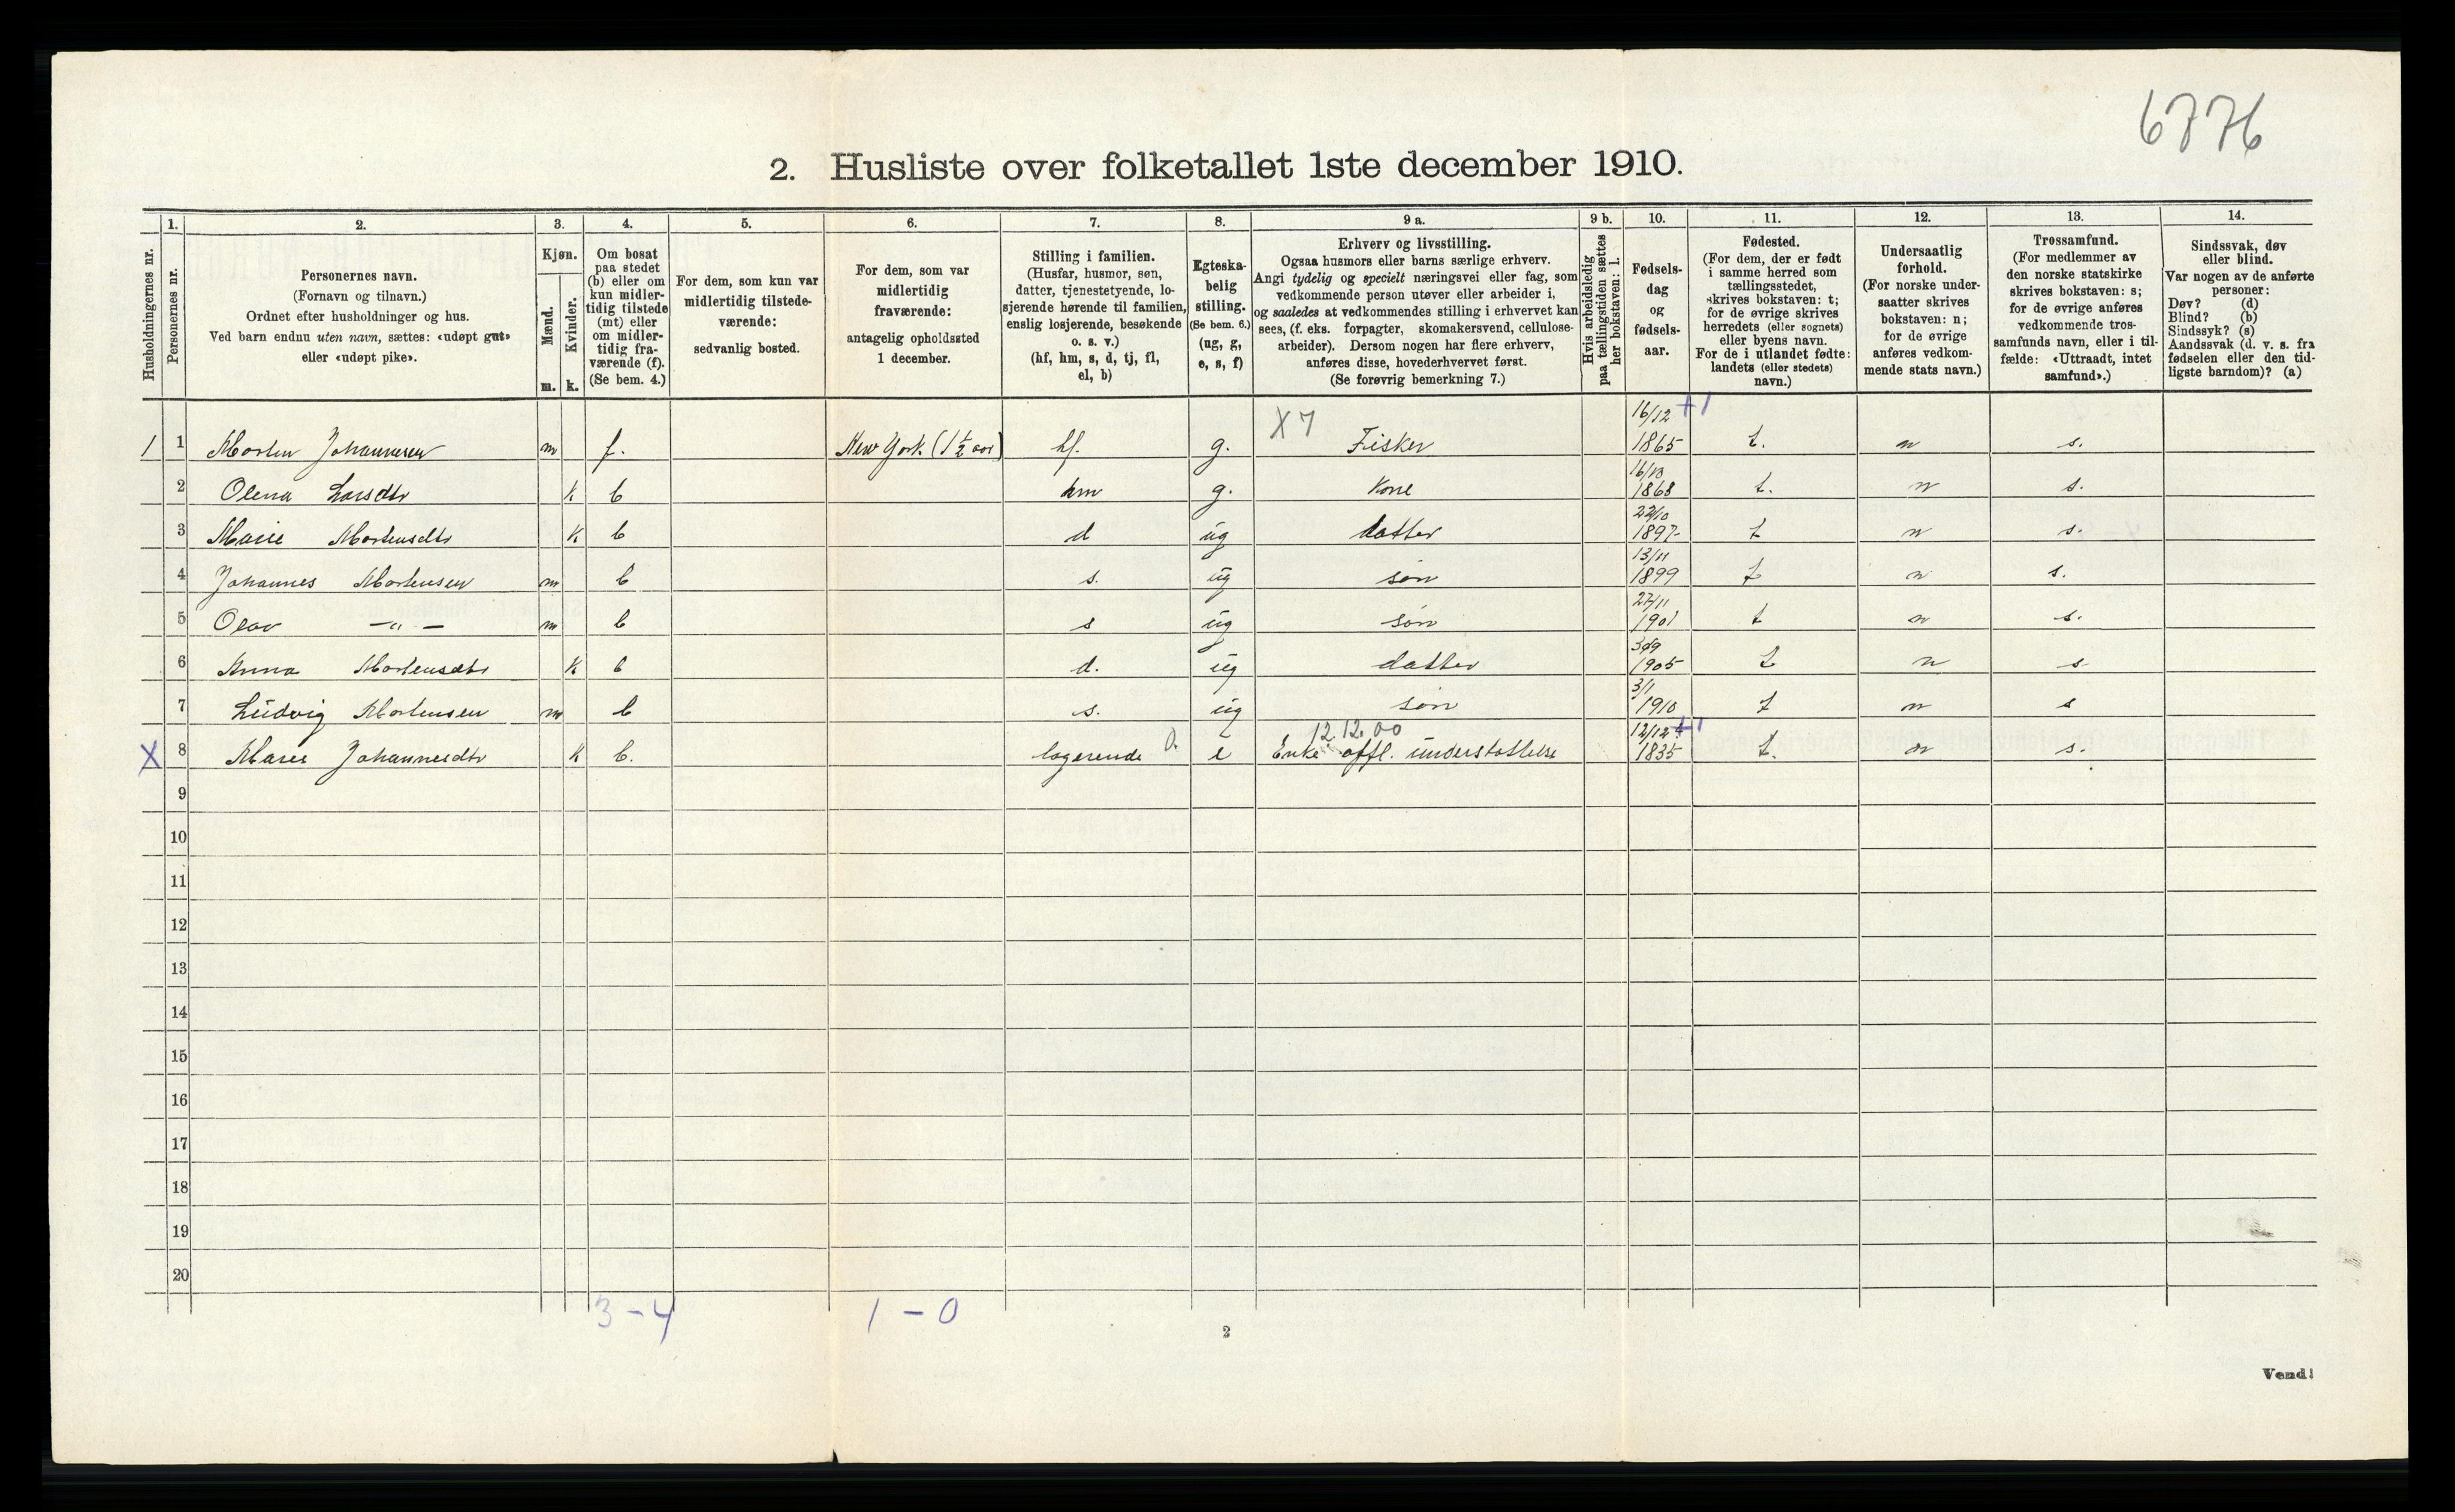 6776
2. Husliste over folketallet 1ste december 1910.
1. 2. 3. 4. 5. 6. 7. 8. 9 a. 9 b. 10. 11. 12. 13. 14.
Husholdningernes nr.
Personernes nr.
Personernes navn.
(Fornavn og tilnavn.)
Ordnet efter husholdninger og hus.
Ved barn endnu uten navn, sættes: «udøpt gut»
eller «udøpt pike».
Kjøn.
Mænd.
Kvinder.
m. k.
Om bosat
paa stedet
(b) eller om
kun midler-
tidig tilstede
(mt) eller
om midler-
tidig fra-
værende (f).
(Se bem. 4.)
For dem, som kun var
midlertidig tilstede-
værende:
sedvanlig bosted.
For dem, som var
midlertidig
fraværende:
antagelig opholdssted
1 december.
Stilling i familien.
(Husfar, husmor, søn,
datter, tjenestetyende, lo-
sjerende hørende til familien,
enslig losjerende, besøkende
o. s. v.)
(hf, hm, s, d, tj, fl,
el, b)
Egteska-
belig
stilling.
(Se bem. 6.)
(ug, g,
e, s, f)
Erhverv og livsstilling.
Ogsaa husmors eller barns særlige erhverv.
Angi tydelig og specielt næringsvei eller fag, som
vedkommende person utøver eller arbeider i,
og saaledes at vedkommendes stilling i erhvervet kan
sees, (f. eks. forpagter, skomakersvend, cellulose-
arbeider). Dersom nogen har flere erhverv,
anføres disse, hovederhvervet først.
(Se forøvrig bemerkning 7.)
Hvis arbeidsledig
paa tællingstiden sættes
her bokstaven: l.
Fødsels-
dag
og
fødsels-
aar.
Fødested.
(For dem, der er født
i samme herred som
tællingsstedet,
skrives bokstaven: t;
for de øvrige skrives
herredets (eller sognets)
eller byens navn.
For de i utlandet fødte:
landets (eller stedets)
navn.)
Undersaatlig
forhold.
(For norske under-
saatter skrives
bokstaven: n;
for de øvrige
anføres vedkom-
mende stats navn.)
Trossamfund.
(For medlemmer av
den norske statskirke
skrives bokstaven: s;
for de øvrige anføres
vedkommende tros-
samfunds navn, eller i til-
fælde: «Uttraadt, intet
samfund».)
Sindssvak, døv
eller blind.
Var nogen av de anførte
personer:
Døv? (d)
Blind? (b)
Sindssyk? (s)
Aandssvak (d. v. s. fra
fødselen eller den tid-
ligste barndom)? (a)
X 7 16/12 +1
1 1 Morten Johannesen m f. New York (1 1/2 aar) hf. g. Fisker 1865 t. n s.
2 Olena Larsdtr k b hm g. Kone 1868 t. n s.
22/10
3 Marie Mortensdtr k b d ug datter 1897 t n s.
13/11
4 Johannes Mortensen m b s. ug søn 1899 t n s.
27/11
5 Olav —"— m b s ug søn 1901 t n s.
6 Anna Mortensdtr k b d. ug datter 1905 t n s
3/1
7 Ludvig Mortensen m b s. ug søn 1910 t n s
12.12.00 12/12 +1
X 8 Maree Johannesdtr k b. logerende 0. e Enke offl. understøttelse 1835 t. n s.
9
10
11
12
13
14
15
16
17
18
19
20
3 - 4 1 - 0
2
Vend!